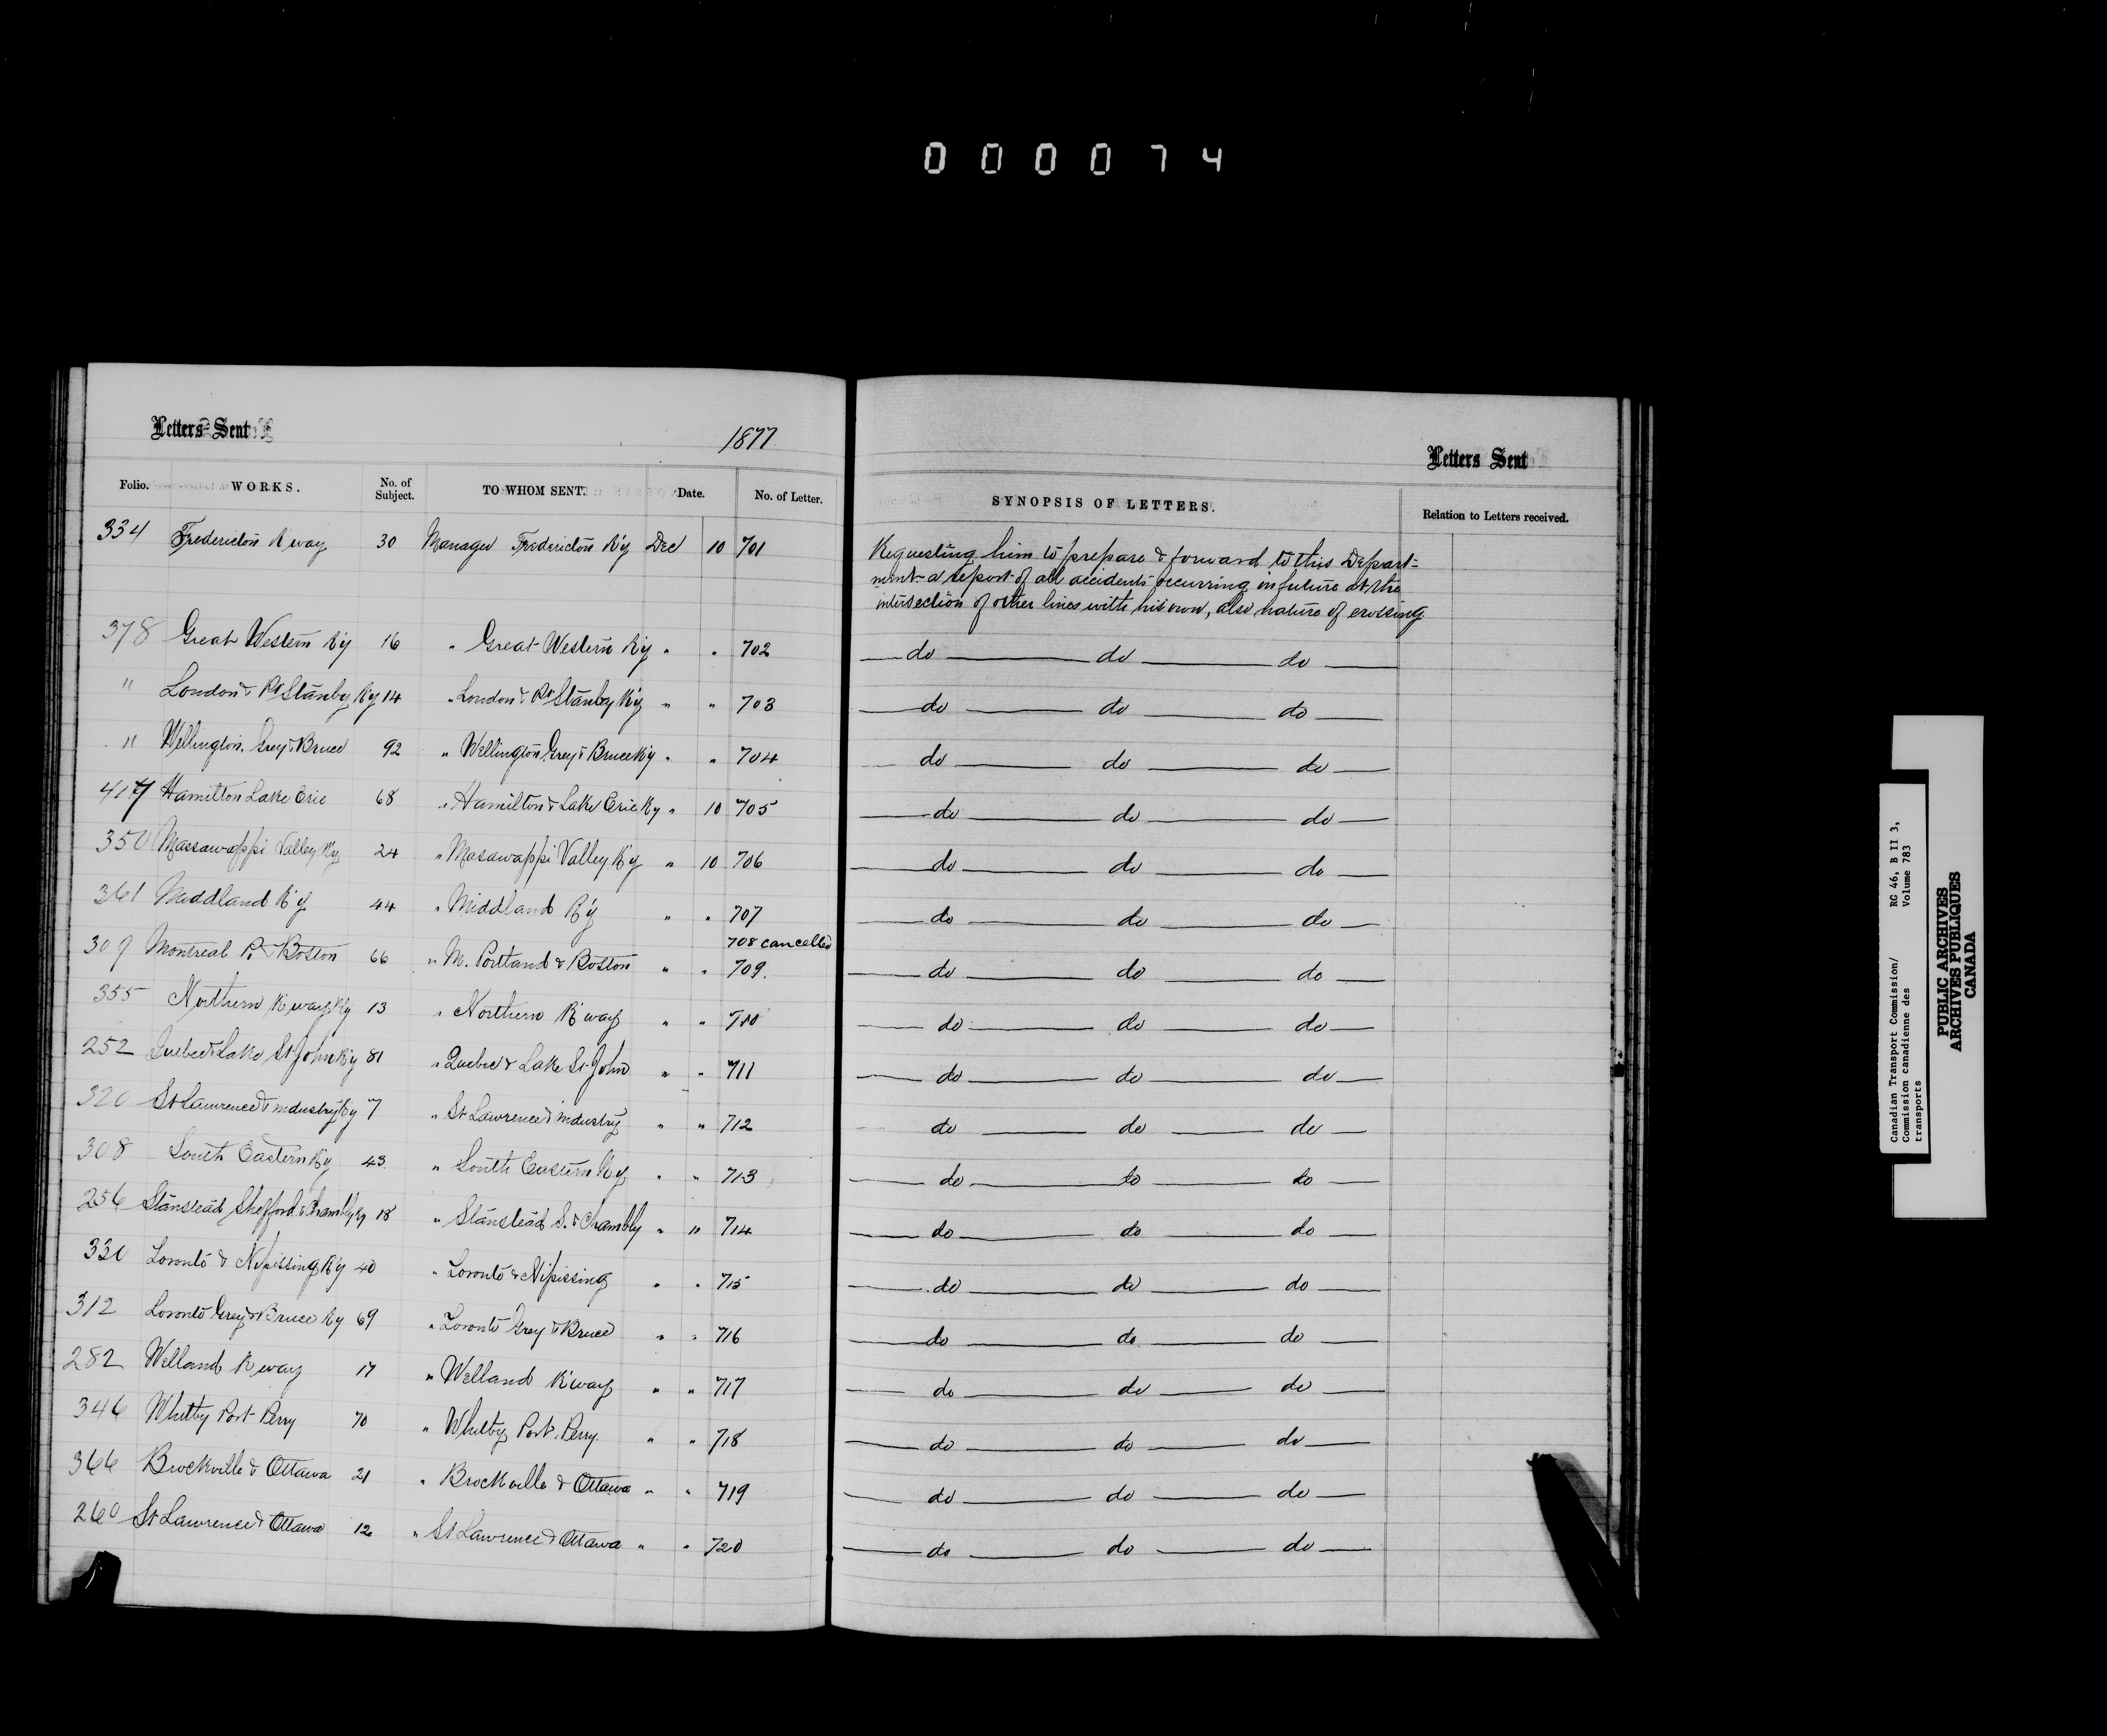 0 0 0 0 7 4
Letters Sent
1877
Letters Sent
Folio. WORKS. No. of Subject. TO WHOM SENT. Date. No. of Letter. SYNOPSIS OF LETTERS. Relation to Letters received.
334 Fredericton R'way 30 Manager Fredericton R'y Dec 10 701 Requesting him to prepare & forward to this Depart=
ment a report of all accidents occurring in future at the
intersection of other lines with his own, also nature of crossing
378 Great Western R'y 16 " Great Western R'y " " 702 — do — do — do —
" London & Pt Stanley R'y 14 " London & Pt Stanley R'y " " 703 — do — do — do —
" Wellington Grey & Bruce 92 " Wellington Grey & Bruce R'y " " 704 — do — do — do —
417 Hamilton Lake Erie 68 " Hamilton & Lake Erie Ry " 10 705 — do — do — do —
350 Massawappi Valley R'y 24 " Masawappi Valley R'y " 10 706 — do — do — do —
361 Middland R'y 44 " Middland R'y " " 707 — do — do — do —
708 cancelled
309 Montreal P. & Boston 66 " M. Portland & Boston " " 709. — do — do — do —
355 Northern R'way R'y 13 " Northern R'way " " 710 — do — do — do —
252 Quebec & Lake St John R'y 81 " Quebec & Lake St John " " 711 — do — do — do —
320 St Lawrence & industry R'y 7 " St Lawrence & industry " " 712 — do — do — do —
308 South Eastern R'y 43 " South Eastern R'y " " 713 — do — do — do —
256 Stanstead Shefford & Chambly R'y 18 " Stanstead S. & Chambly " " 714 — do — do — do —
330 Toronto & Nipissing R'y 40 " Toronto & Nipissing " " 715 — do — do — do —
312 Toronto Grey & Bruce Ry 69 " Toronto Grey & Bruce " " 716 — do — do — do —
282 Welland R'way 17 " Welland R'way " " 717 — do — do — do —
346 Whitby Port Perry 70 " Whitby Port Perry. " " 718 — do — do — do —
366 Brockville & Ottawa 21 " Brockville & Ottawa " " 719 — do — do — do —
260 St Lawrence & Ottawa 12 " St Lawrence & Ottawa " " 720 — do — do — do —
Canadian Transport Commission/ RG 46, B II 3,
Commission canadienne des Volume 783
transports
PUBLIC ARCHIVES
ARCHIVES PUBLIQUES
CANADA